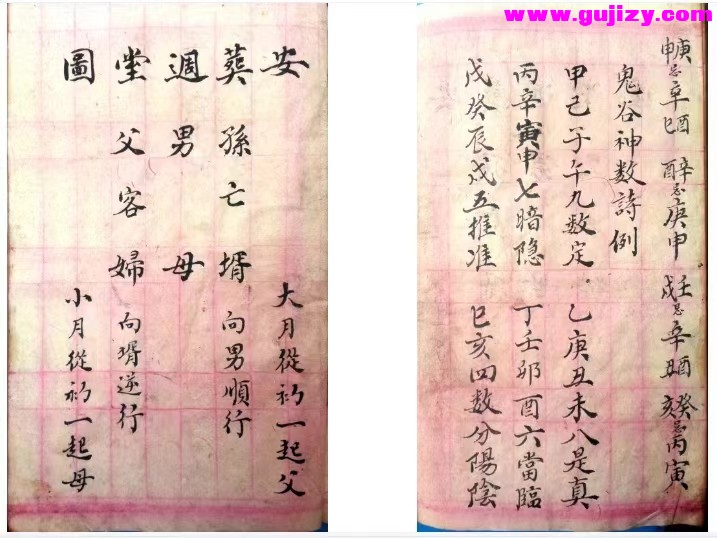 www.gujizy.com
庚申忌辛酉巳 辛酉忌庚申 壬戌忌辛酉丑 癸亥忌丙寅
鬼谷神数詩例
甲己子午九数定 乙庚丑未八是真
丙辛寅申七暗隐 丁壬卯酉六當臨
戊癸辰戌五推准 巳亥四数分陽陰
安 大月從初一起父
葬孫亡壻 向男順行
週男母
堂父客婦 向壻逆行
圖 小月從初一起母